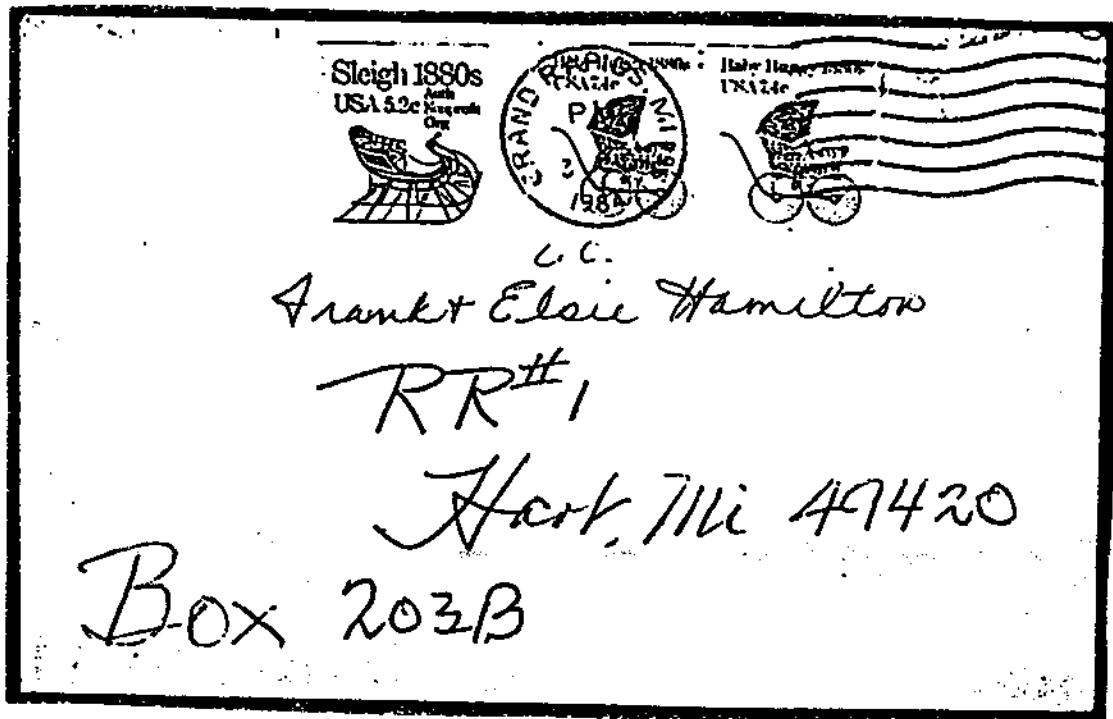 Sleigh 1880s
USA 5.2c
Auth
Nonprofit
Org
GRAND RAPIDS, MI
PM
1984
Baby Buggy 1880s
USA 7.4c
Baby Buggy 1880s
USA 7.4c
C.C.
Frank + Elsie Hamilton
RR#1
Hart, Mi 49420
Box 203B